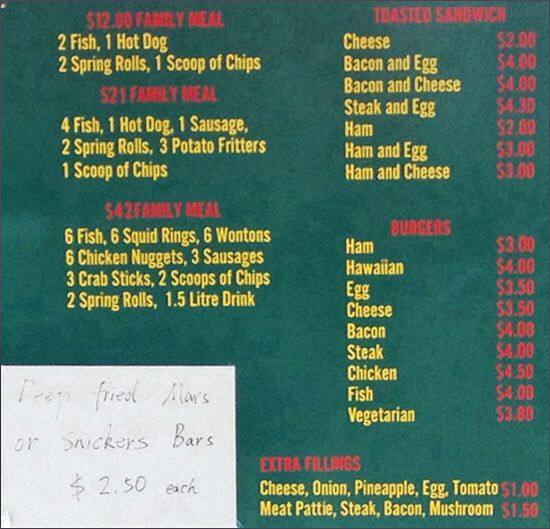 $12.00 FAMILY MEAL
2 Fish, 1 Hot Dog
2 Spring Rolls, 1 Scoop of Chips
$21 FAMILY MEAL
4 Fish, 1 Hot Dog, 1 Sausage,
2 Spring Rolls, 3 Potato Fritters
1 Scoop of Chips
$42 FAMILY MEAL
6 Fish, 6 Squid Rings, 6 Wontons
6 Chicken Nuggets, 3 Sausages
3 Crab Sticks, 2 Scoops of Chips
2 Spring Rolls, 1.5 Litre Drink
Deep fried Mars
or Snickers Bars
$ 2.50 each
TOASTED SANDWICH
Cheese $2.00
Bacon and Egg $4.00
Bacon and Cheese $4.00
Steak and Egg $4.30
Ham $2.80
Ham and Egg $3.00
Ham and Cheese $3.00
BURGERS
Ham $3.00
Hawaiian $4.00
Egg $3.50
Cheese $3.50
Bacon $4.00
Steak $4.00
Chicken $4.50
Fish $4.00
Vegetarian $3.80
EXTRA FILLINGS
Cheese, Onion, Pineapple, Egg, Tomato $1.00
Meat Pattie, Steak, Bacon, Mushroom $1.50